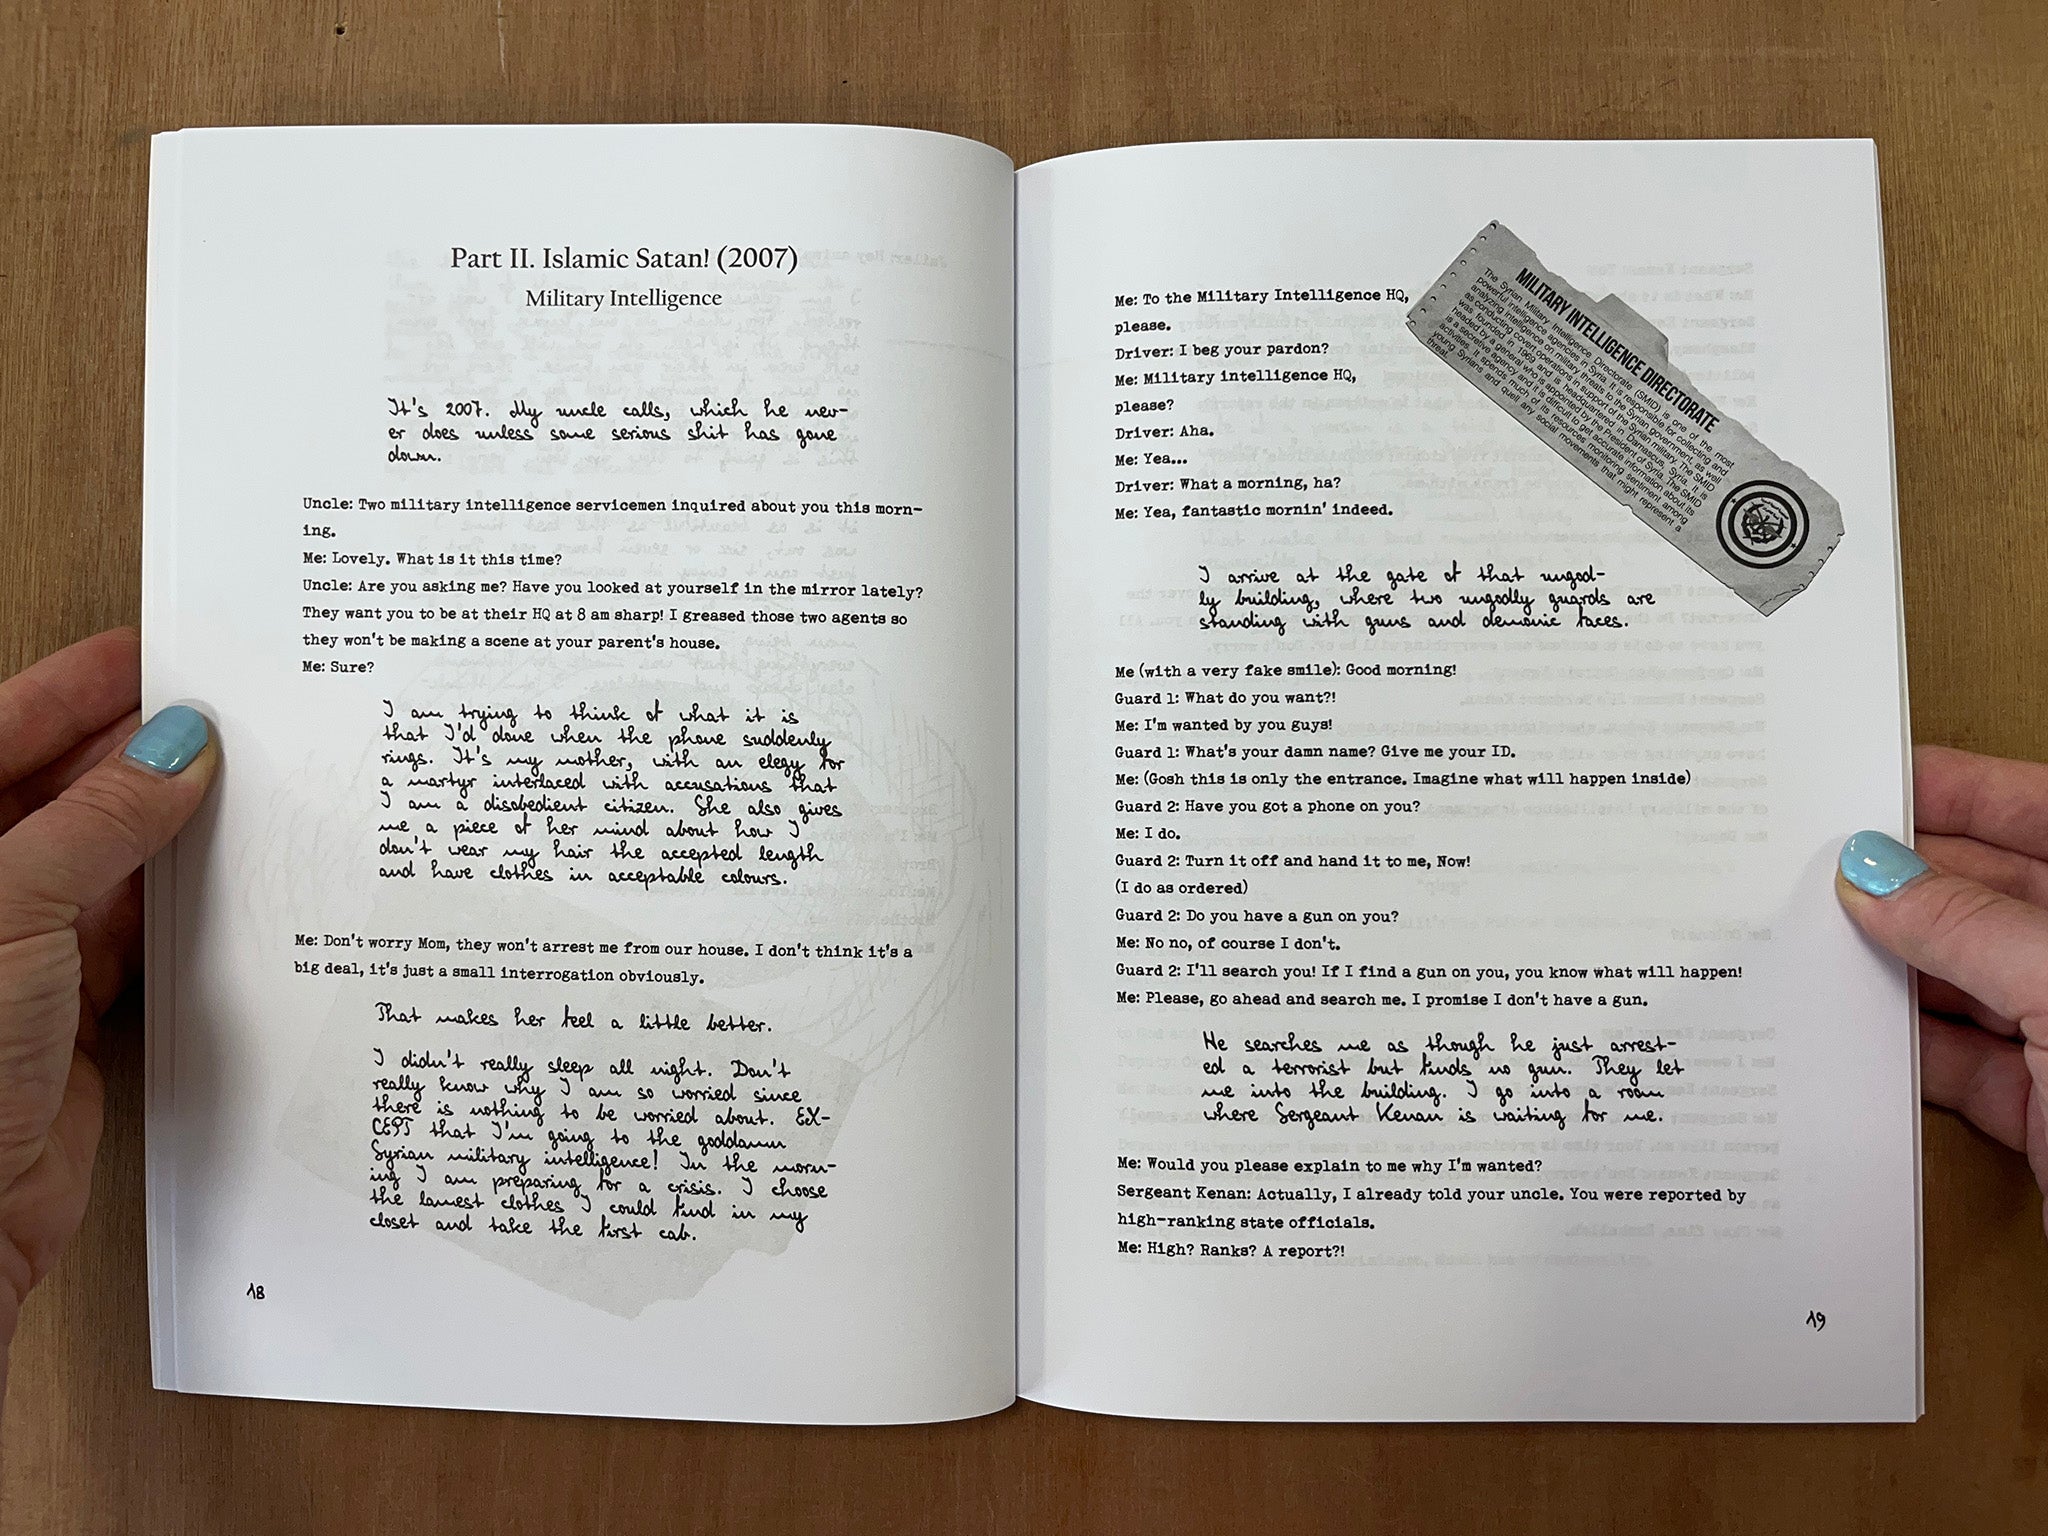 Part II. Islamic Satan! (2007)
Military Intelligence
It's 2007. My uncle calls, which he nev-
er does unless some serious shit has gone
down.
Uncle: Two military intelligence servicemen inquired about you this morn-
ing.
Me: Lovely. What is it this time?
Uncle: Are you asking me? Have you looked at yourself in the mirror lately?
They want you to be at their HQ at 8 am sharp! I greased those two agents so
they won't be making a scene at your parent's house.
Me: Sure?
I am trying to think of what it is
that I'd done when the phone suddenly
rings. It's my mother, with an elegy for
a martyr interlaced with accusations that
I am a disobedient citizen. She also gives
me a piece of her mind about how I
don't wear my hair the accepted length
and have clothes in acceptable colours.
Me: Don't worry Mom, they won't arrest me from our house. I don't think it's a
big deal, it's just a small interrogation obviously.
That makes her feel a little better.
I didn't really sleep all night. Don't
really know why I am so worried since
there is nothing to be worried about. EX-
CEPT that I'm going to the goddamn
Syrian military intelligence! In the morn-
ing I am preparing for a crisis. I choose
the lamest clothes I could find in my
closet and take the first cab.
18
Me: To the Military Intelligence HQ,
please.
Driver: I beg your pardon?
Me: Military intelligence HQ,
please?
Driver: Aha.
Me: Yea...
Driver: What a morning, ha?
Me: Yea, fantastic mornin' indeed.
MILITARY INTELLIGENCE DIRECTORATE
The Syrian Military Intelligence Directorate (SMID) is one of the most
powerful intelligence agencies in Syria. It is responsible for collecting and
analyzing intelligence on military threats to the Syrian government, as well
as conducting covert operations in support of the Syrian military. The SMID
was founded in 1969 and is headquartered in Damascus, Syria. It is
headed by a general who is appointed by the President of Syria. The SMID
is a secretive agency and it is difficult to get accurate information about its
activities. It spends much of its resources monitoring sentiment among
young Syrians and quell any social movements that might represent a
threat.
I arrive at the gate of that ungod-
ly building, where two ungodly guards are
standing with guns and demonic faces.
Me (with a very fake smile): Good morning!
Guard 1: What do you want?!
Me: I'm wanted by you guys!
Guard 1: What's your damn name? Give me your ID.
Me: (Gosh this is only the entrance. Imagine what will happen inside)
Guard 2: Have you got a phone on you?
Me: I do.
Guard 2: Turn it off and hand it to me, Now!
(I do as ordered)
Guard 2: Do you have a gun on you?
Me: No no, of course I don't.
Guard 2: I'll search you! If I find a gun on you, you know what will happen!
Me: Please, go ahead and search me. I promise I don't have a gun.
He searches me as though he just arrest-
ed a terrorist but finds no gun. They let
me into the building. I go into a room
where Sergeant Kenan is waiting for me.
Me: Would you please explain to me why I'm wanted?
Sergeant Kenan: Actually, I already told your uncle. You were reported by
high-ranking state officials.
Me: High? Ranks? A report?!
19